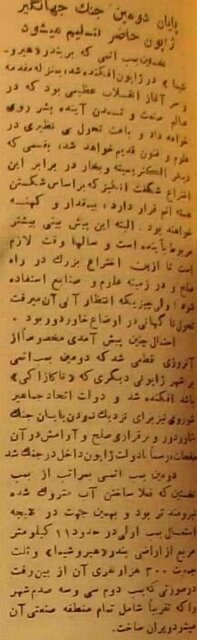 پایان دومین جنگ جهانگیر
ژاپون حاضر به تسلیم میشود
نخستین بمب اتمی که بر بندر «هیرو-
شیما» در ژاپون افکنده شد، بمنزله مقدمه
و سر آغاز انقلاب عظیمی بود که در
عالم صنعت و تمدن آینده بشر روی
خواهد داد و باعث تحولی بی نظیری در
علوم و فنون قدیم خواهد شد، بقسمی که
نیروی الکتریسیته و بخار در برابر این
اختراع شگفت انگیز که بر اساس شکستن
هسته اتم قرار دارد، بیمقدار و کهنه
خواهند بود. البته این پیش بینی بیشتر
مربوط بآینده است و سالها وقت لازم
است تا ازین اختراع بزرگ در راه
صلح و در زمینه علوم و صنایع استفاده
شود؛ ولی چیزیکه انتظار آنی آن میرفت
تحول ناگهانی در اوضاع خاور دور بود.
احتمال چنین پیش آمدی مخصوصا از
آنروزی قطعی شد که دومین بمب اتمی
بر شهر ژاپونی دیگری که «ناگازاکی»
باشد افکنده شد و دولت اتحاد جماهیر
شوروی نیز برای نزدیک نمودن پایان جنگ
خاور دور و برقراری صلح و آرامش در آن
صفحات، رسماً با دولت ژاپون داخل در جنگ شد
دومین بمب اتمی بمراتب از بمب
نخستین که فعلا ساختن آن متروک شده
نیرومند تر بود و بهمین جهت در نتیجه
استعمال بمب اولی در حدود ۱۱ کیلومتر
مربع از اراضی بندر «هیروشیما» و ثلث
جمعیت ۳۰۰ هزار نفری آن از بین رفت
در صورتی که بمب دوم سی و سه صدم شهر
را که تقریباً شامل تمام منطقه صنعتی آن
میشد ویران ساخت.